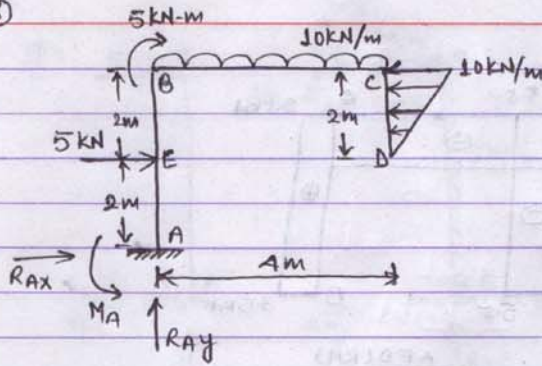 5 KN-m
10 KN/m
10 KN/m
B
C
2m
2m
5 KN
E
D
2m
A
RAX
4m
MA
RAy